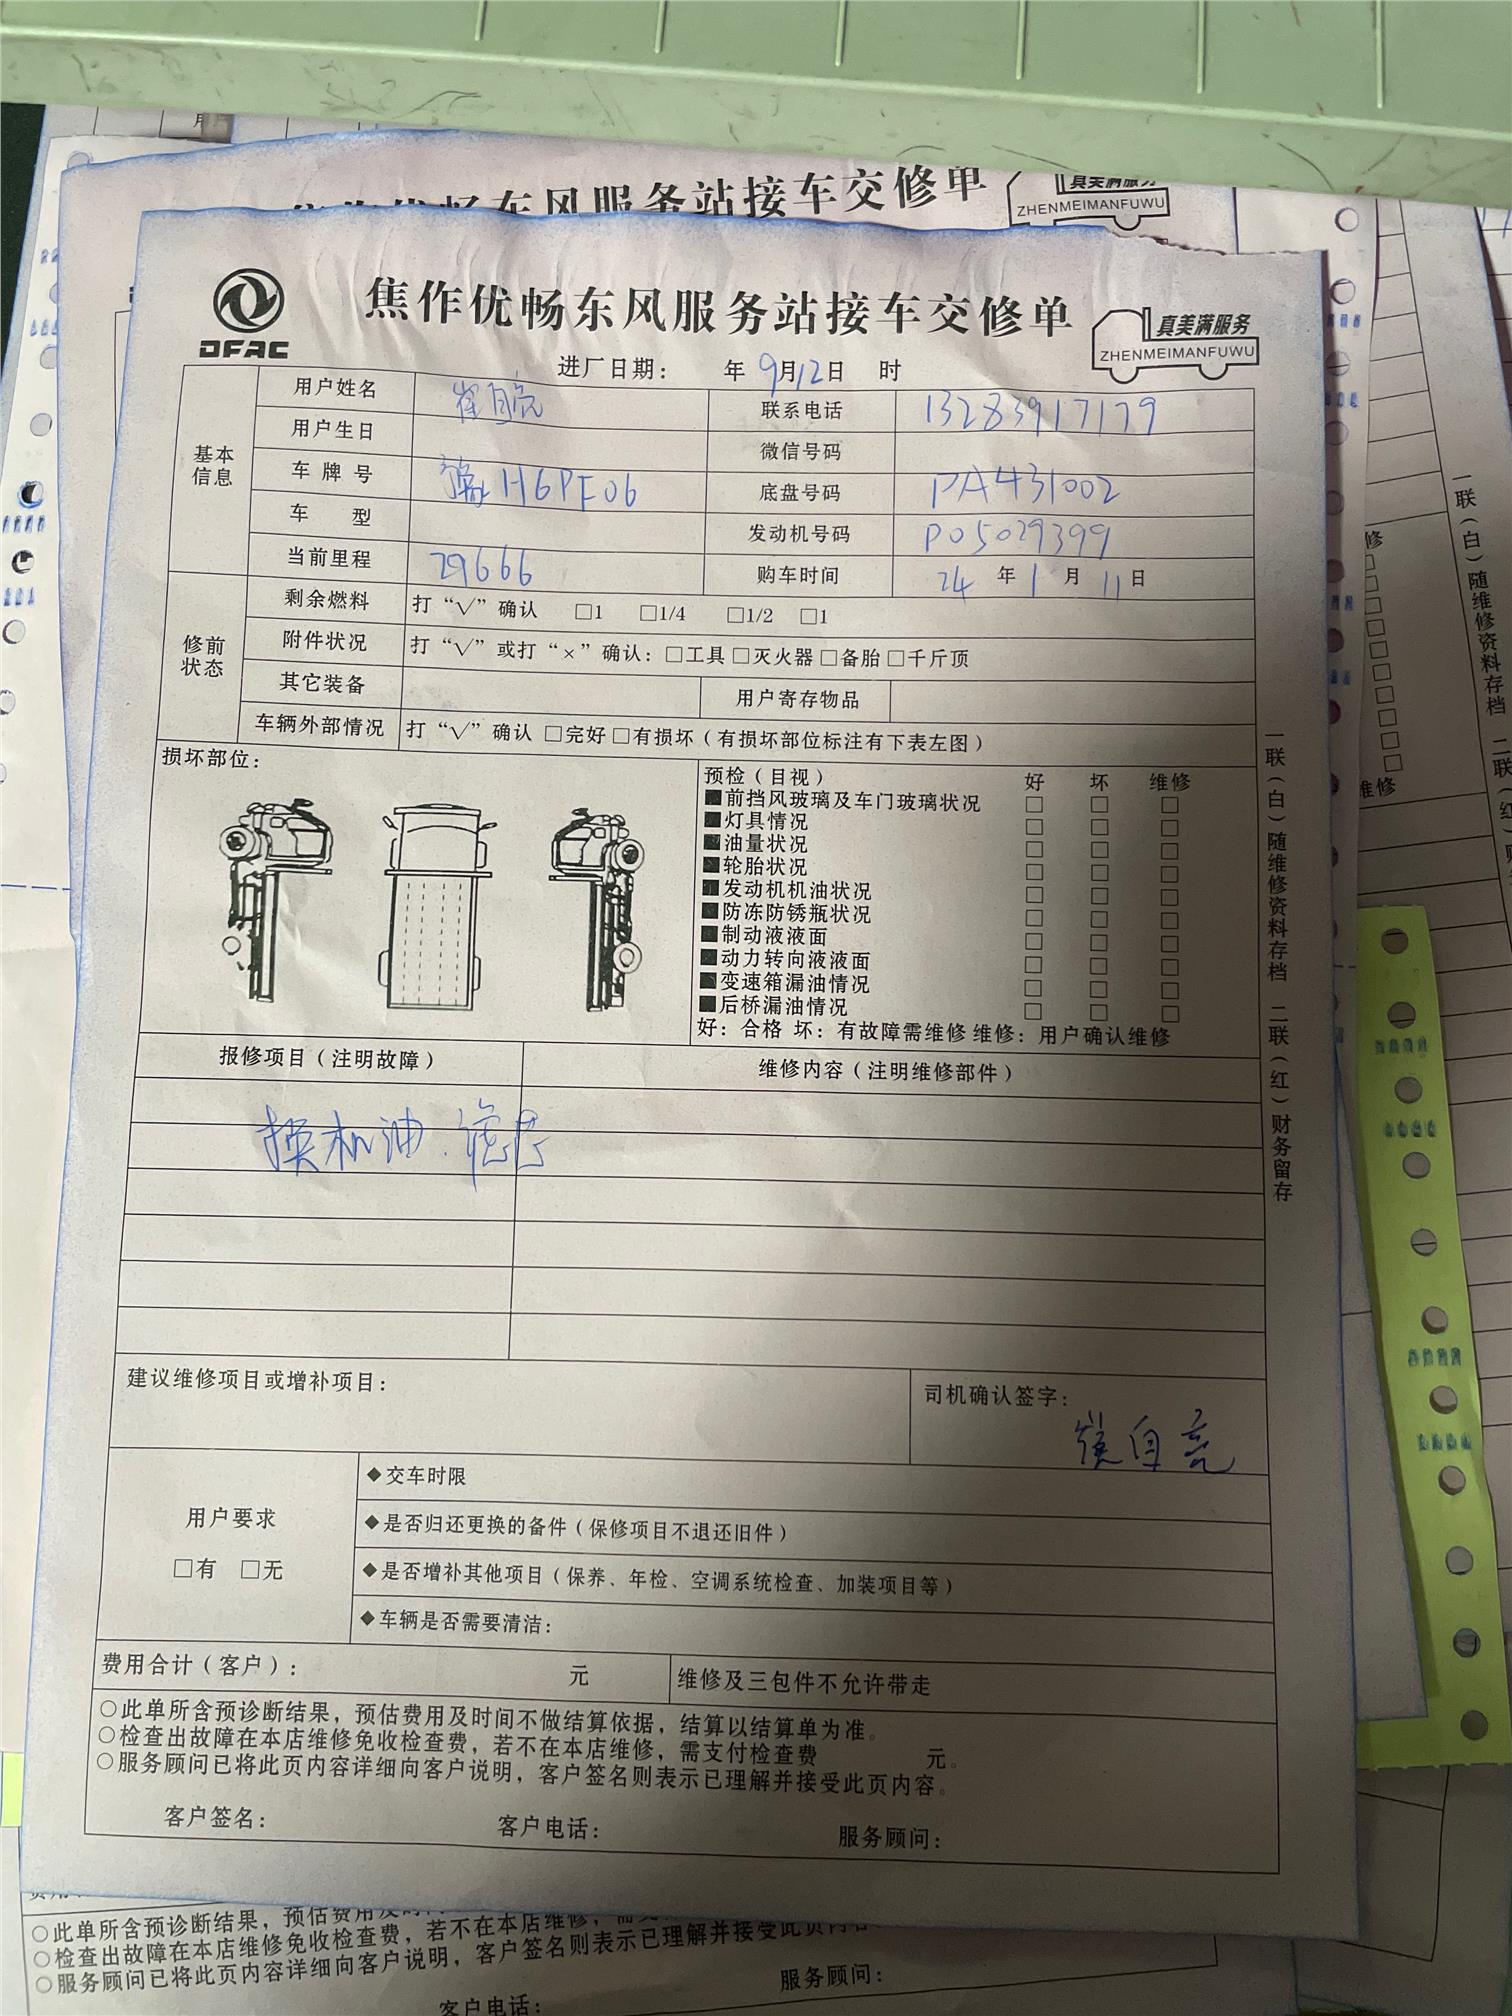 焦作优畅东风服务站接车交修单
真美满服务
ZHENMEIMANFUWU
DFAC
焦作优畅东风服务站接车交修单
真美满服务
ZHENMEIMANFUWU
进厂日期： 年 9月12日 时
基本信息
用户姓名 崔自亮 联系电话 13283917179
用户生日 微信号码
车牌号 豫H6PF06 底盘号码 PA431002
车型 发动机号码 P05029399
当前里程 29666 购车时间 24年1月11日
修前状态
剩余燃料 打“√”确认 □1 □1/4 □1/2 □1
附件状况 打“√”或打“×”确认：□工具□灭火器□备胎□千斤顶
其它装备 用户寄存物品
车辆外部情况 打“√”确认 □完好□有损坏（有损坏部位标注有下表左图）
损坏部位：
预检（目视） 好 坏 维修
■前挡风玻璃及车门玻璃状况 □ □ □
■灯具情况 □ □ □
■油量状况 □ □ □
■轮胎状况 □ □ □
■发动机机油状况 □ □ □
■防冻防锈瓶状况 □ □ □
■制动液液面 □ □ □
■动力转向液液面 □ □ □
■变速箱漏油情况 □ □ □
■后桥漏油情况 □ □ □
好：合格 坏：有故障需维修 维修：用户确认维修
报修项目（注明故障） 维修内容（注明维修部件）
换机油.
建议维修项目或增补项目：
司机确认签字：
崔自亮
用户要求
□有 □无
◆交车时限
◆是否归还更换的备件（保修项目不退还旧件）
◆是否增补其他项目（保养、年检、空调系统检查、加装项目等）
◆车辆是否需要清洁：
费用合计（客户）： 元 维修及三包件不允许带走
○此单所含预诊断结果，预估费用及时间不做结算依据，结算以结算单为准。
○检查出故障在本店维修免收检查费，若不在本店维修，需支付检查费 元。
○服务顾问已将此页内容详细向客户说明，客户签名则表示已理解并接受此页内容。
客户签名： 客户电话： 服务顾问：
一联（白）随维修资料存档 二联（红）财务留存
一联（白）随维修资料存档 二联（红）
维修
○此单所含预诊断结果，预估费用及时
○检查出故障在本店维修免收检查费，若不在本店维修，
○服务顾问已将此页内容详细向客户说明，客户签名则表示已理解并接受此页内容
客户电话： 服务顾问：